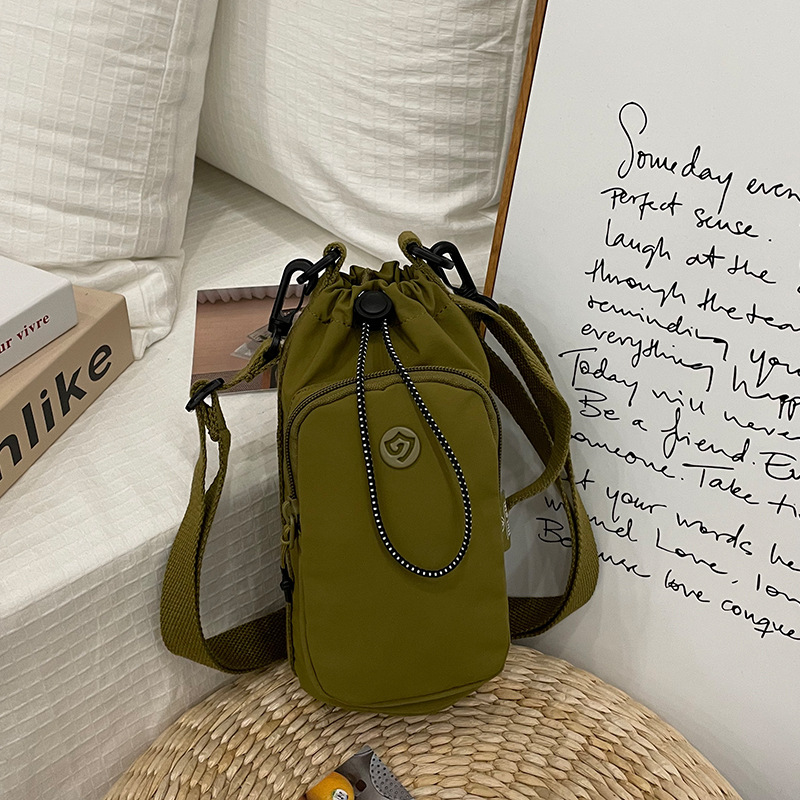 ur vivre
nlike
Someday ever
perfect sense.
laugh at the
through the tea
reminding you
everything happ
Today will never
Be a friend. Ev
omeone. Take ti
your words he
and Love, lov
Because love conque